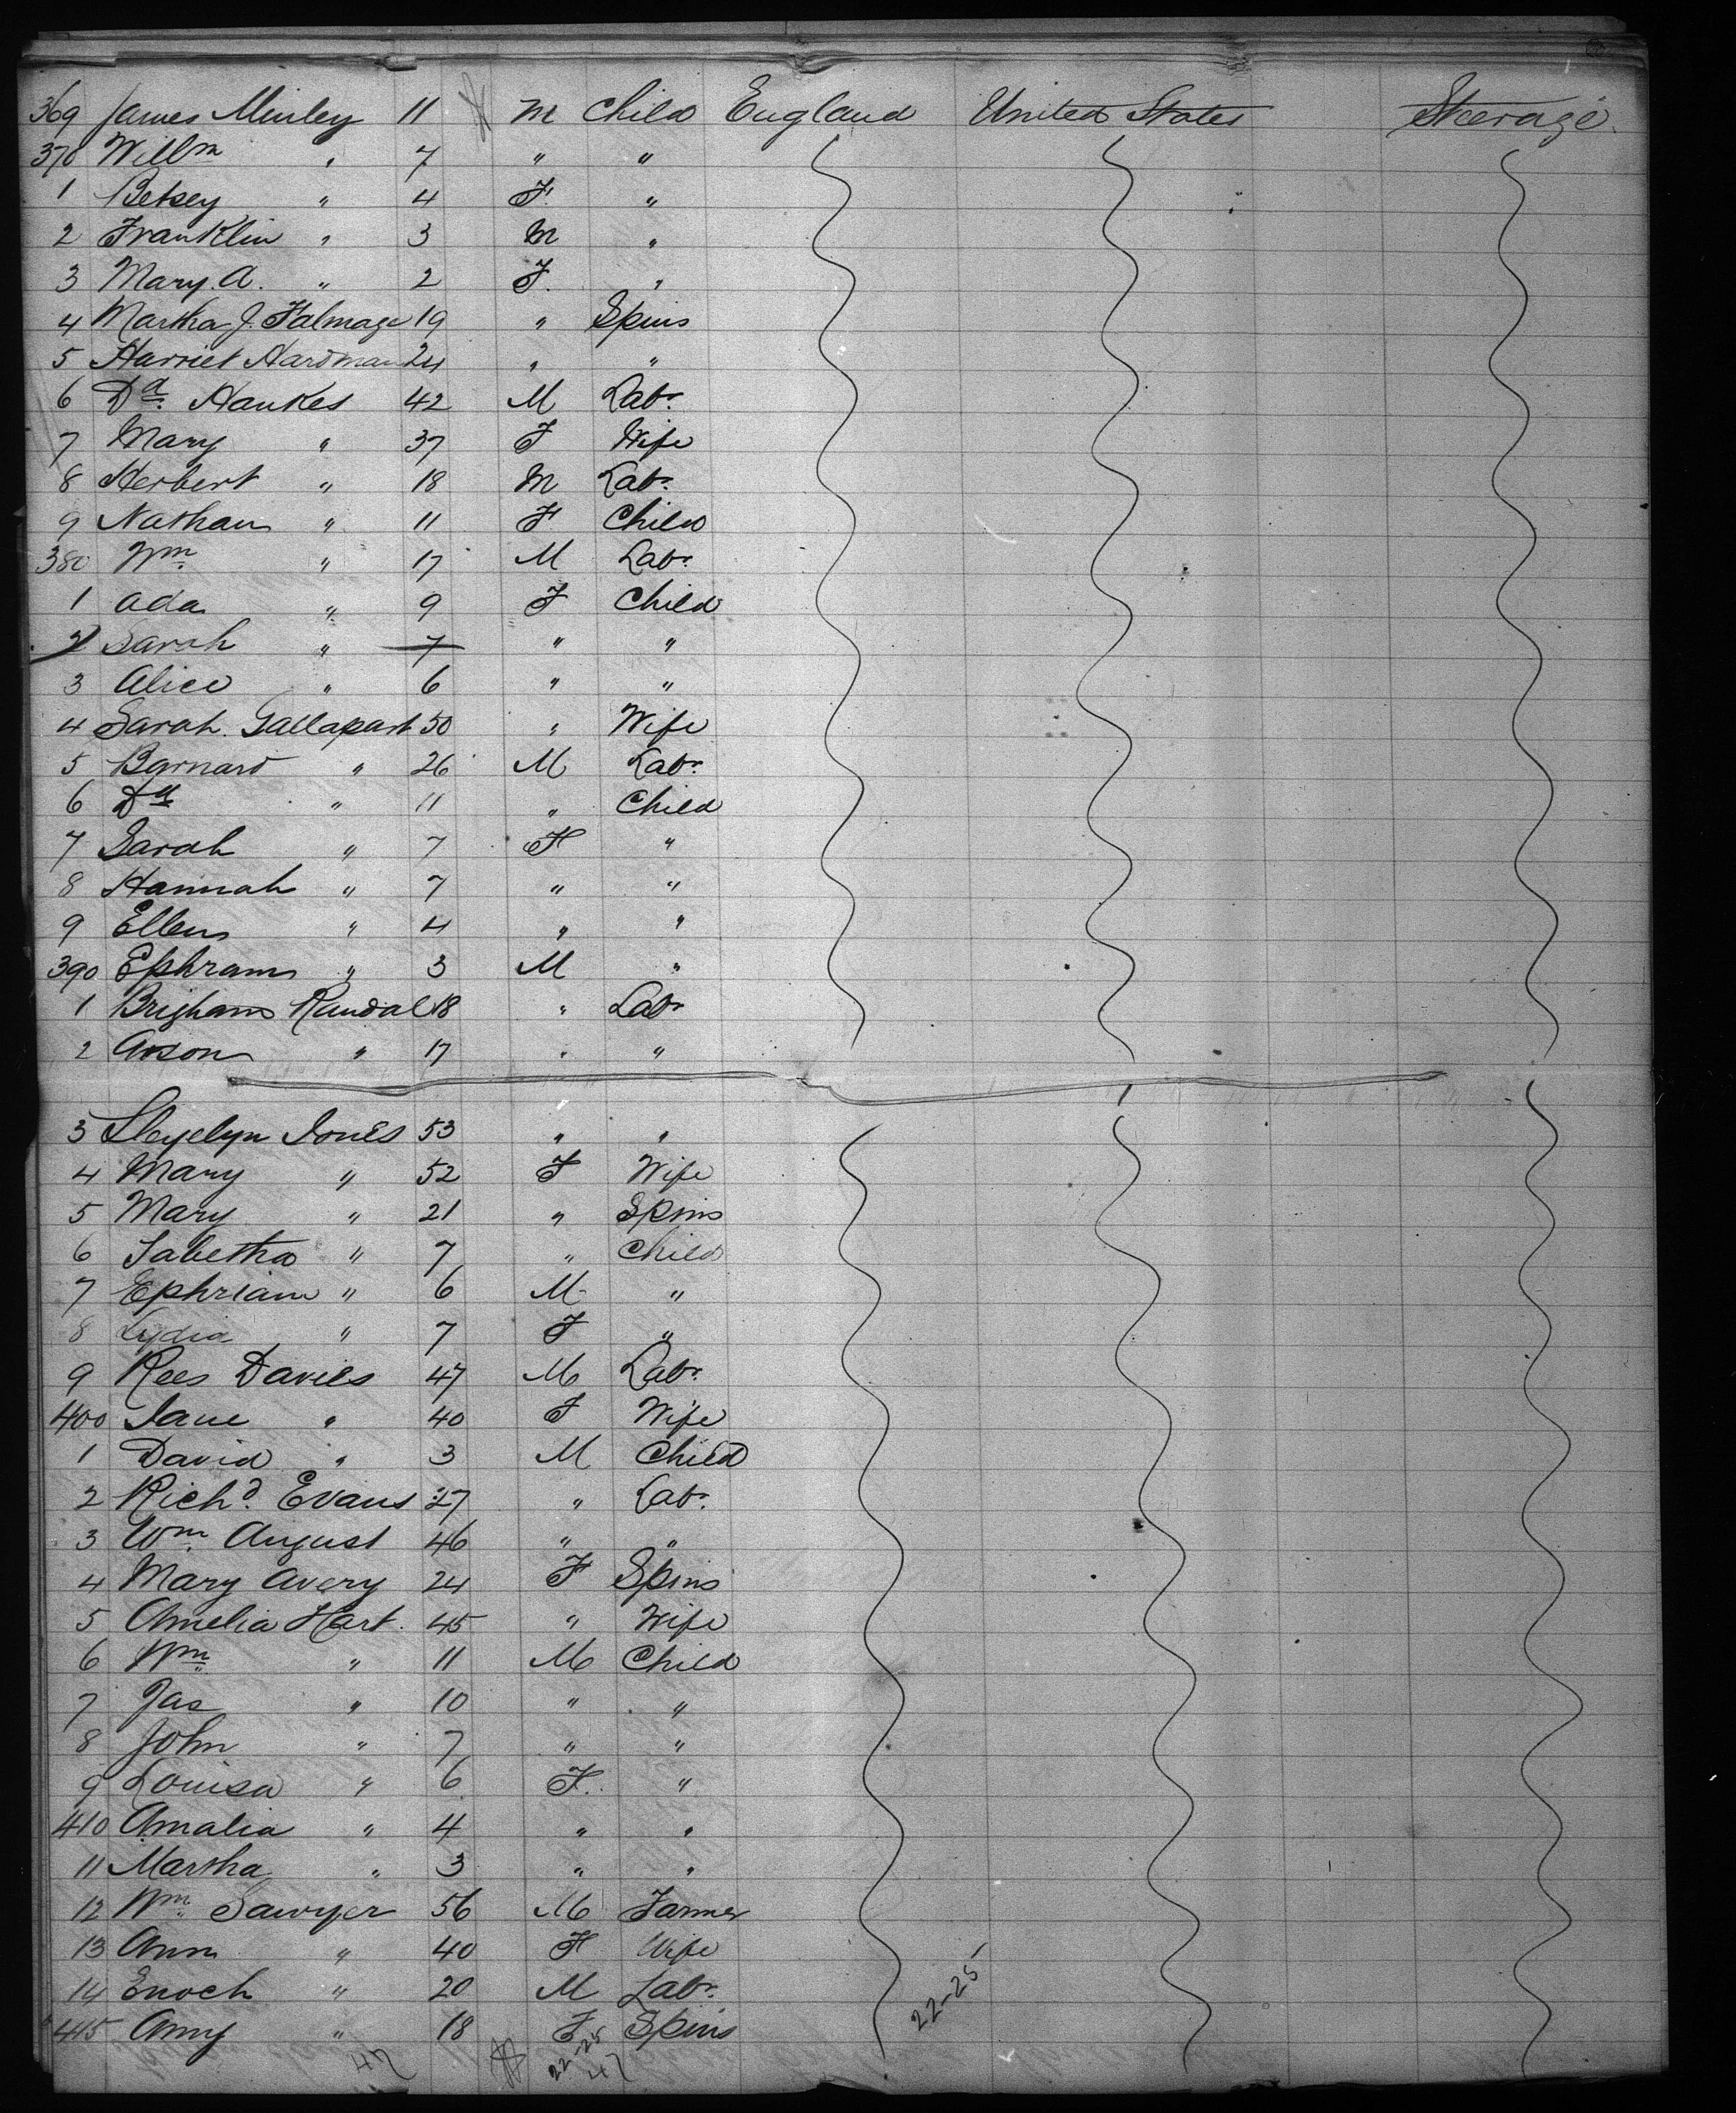 369 James Minley 11 M Child England United States Steerage
370 Willm " 7 " "
1 Betsey " 4 F "
2 Franklin " 3 M "
3 Mary. A. " 2 F. "
4 Martha J. Talmage 19 " Spins
5 Harriet Hardman 24 " "
6 Dd. Haukes 42 M Labr.
7 Mary " 37 F Wife
8 Herbert " 18 M Labr.
9 Nathan " 11 F Child
380 Wm. " 17 M Labr.
1 Ada " 9 F Child
2 Sarah " 7 " "
3 Alice " 6 " "
4 Sarah 50 " Wife
5 Barnard " 26 M Labr.
6 Dd " 11 " Child
7 Sarah " 7 F "
8 Hannah " 7 " "
9 Ellen " 4 " "
390 Ephram " 3 M "
1 Brigham Randal 18 " Labr
2 " 17 " "
3 Jones 53 " "
4 Mary " 52 F Wife
5 Mary " 21 " Spins
6 Tabetha " 7 " Child
7 Ephriam " 6 M "
8 Lydia " 7 F "
9 Rees Davies 47 M Labr.
400 Jane " 40 F Wife
1 David " 3 M Child
2 Richd. Evans 27 " Labr.
3 Wm. August 46 " "
4 Mary Avery 24 F Spins
5 Amelia Hart. 45 " Wife
6 Wm " 11 M Child
7 Jas " 10 " "
8 John " 7 " "
9 Louisa " 6 F. "
410 Amalia " 4 " "
11 Martha " 3 " "
12 Wm. Sawyer 56 M Farmer
13 Ann " 40 F Wife
14 Enoch " 20 M Labr.
415 Amy " 18 F Spins
22-25
47 22-25 47